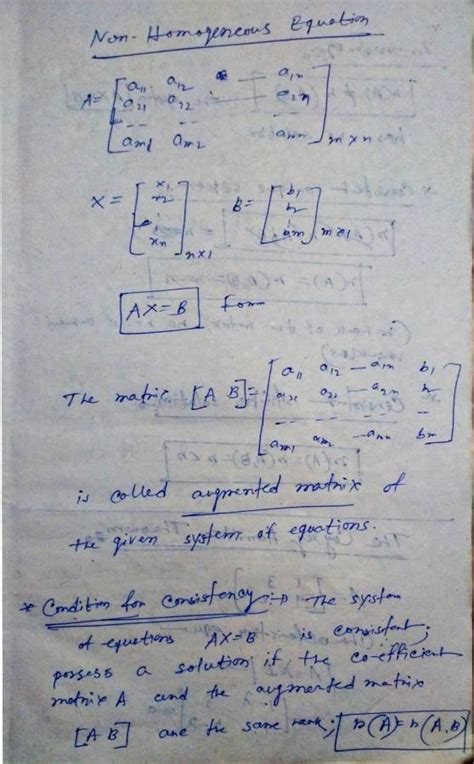 Non-Homogeneous Equation
A = [ a11 a12 — a1n
a21 a22 — a2n
-- -- --
am1 am2 amn ] m×n
X = [ x1 x2 - xn ] n×1 B = [ b1 b2 bm ] m×1
AX = B Form
The matrix [A B] = [ a11 a12 — a1n b1
a21 a22 — a2n b2
-- -- -- -
am1 am2 — amn bm ]
is called augmented matrix of
the given system of equations.
* Condition for Consistency :→ The system
of equations AX = B is consistent;
possess a solution if the co-efficient
matrix A and the augmented matrix
[A B] are the same rank; r(A) = r(A,B)